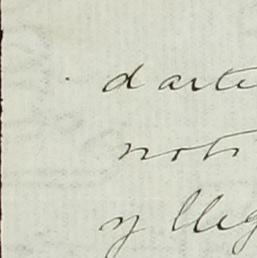 darte
noti
y lleg